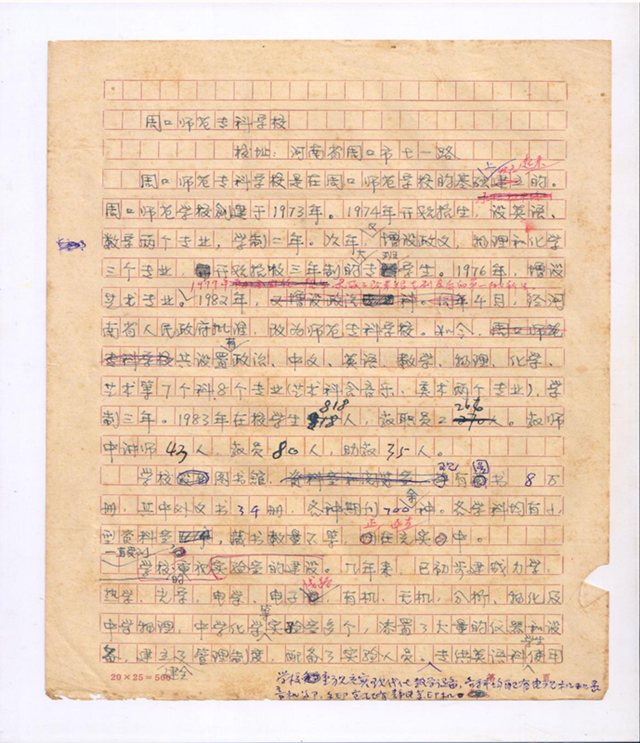 周口师范专科学校
校址：河南省周口市七一路
周口师范专科学校是在周口师范学校的基础上建立起来的。
周口师范学校创建于1973年。1974年开始招生，设英语、
数学两个专业，学制二年。次年增设政文，物理和化学
三个专业，开始招收三年制的专学生。1976年，增设
艺术专业。1983年，4月，经河
南省人民政府批准，改为师范专科学校。如今，
共设置有政治、中文、英语、数学、物理、化学、
艺术等7个科8个专业（艺术科含音乐、美术两个专业），学
制三年。1983年在校学生818人，教职员工266人。教师
中讲师43人，教员80人，助教35人。
学校图书馆，有图书8万
册，其中外文书3千册，各种期刊700余种。各学科均有小
型资料室，藏书数量不等，正在充实中。
学校重视实验室的建设。几年来，已初步建成力学，
热学，光学，电学、电子，有机，无机，分析，物化及
中学物理，中学化学等实验室多个，添置了大量的仪器和设
备，建立了管理制度，配备了实验人员。专供英语科学生使用
20×25=500